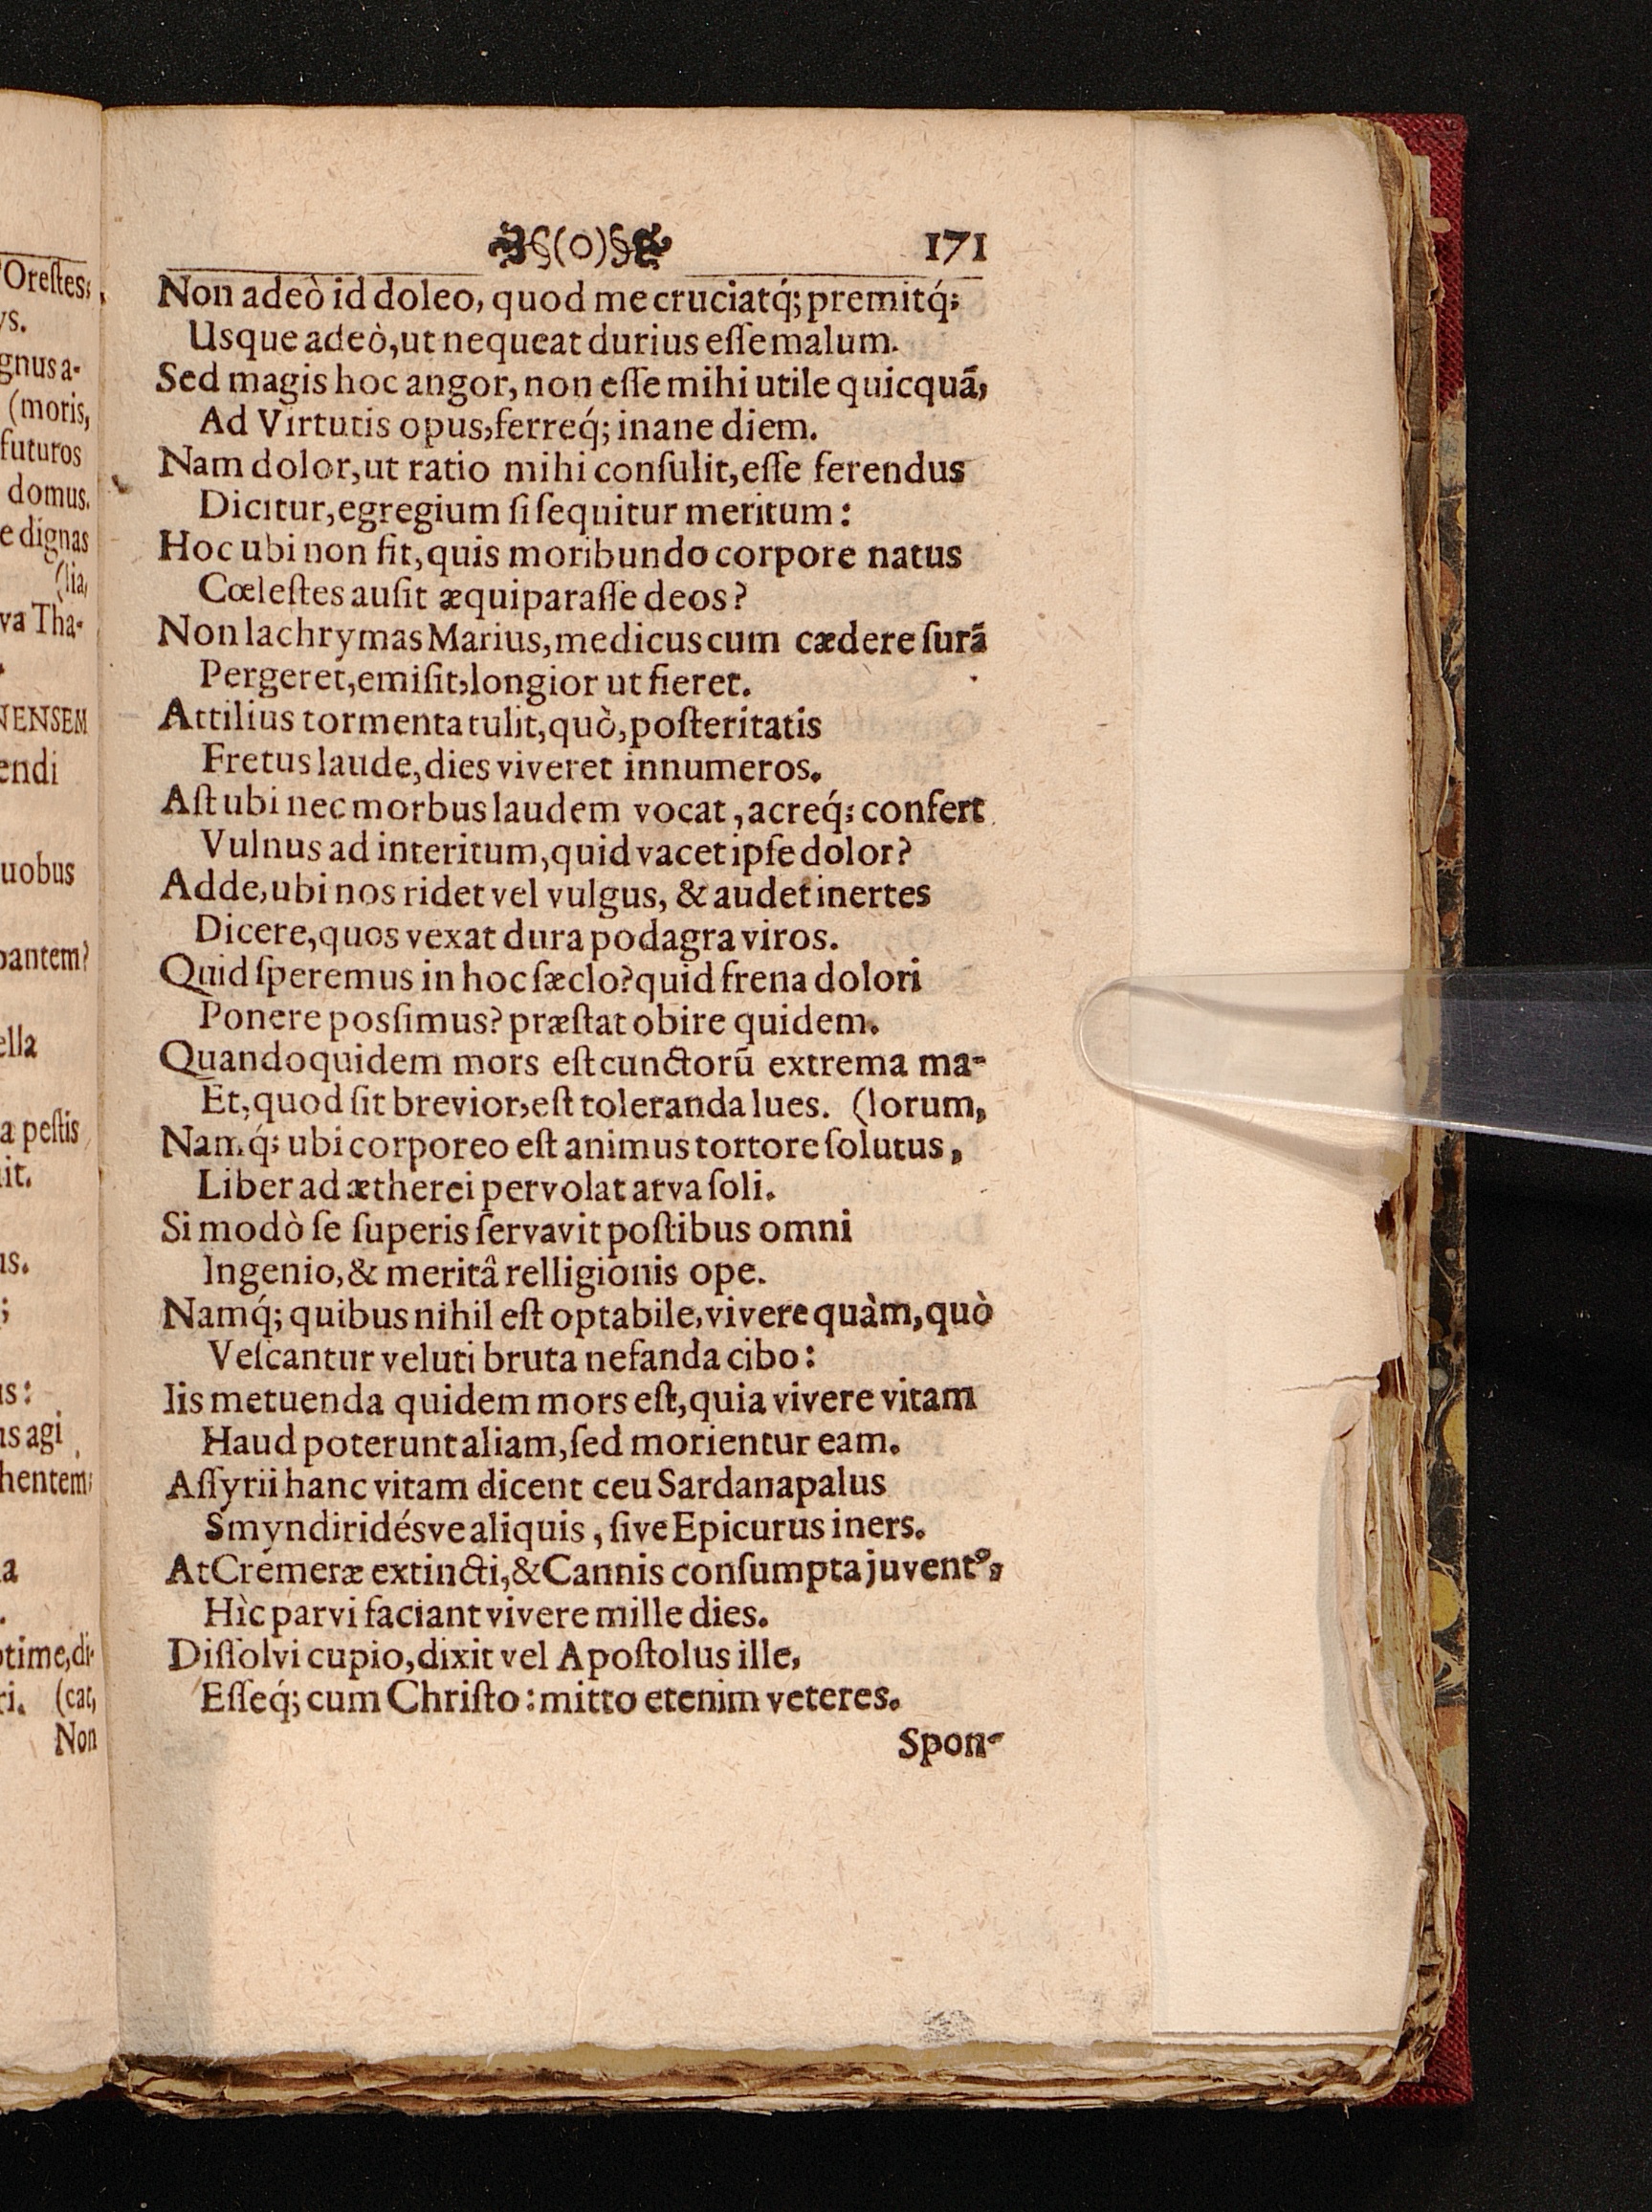 Orestes;
ys.
gnus a-
(moris,
futuros
domus.
e dignas
(lia,
va Tha-
NENSEM
endi
uobus
pantem?
ella
a pestis
it.
us.
;
us:
us agi
hentem
a
ptime, di-
ri. (cat,
Non
§(0)§ 171
Non adeò id doleo, quod me cruciatq́; premitq́;
Usque adeò, ut nequeat durius eſſe malum.
Sed magis hoc angor, non eſſe mihi utile quicquã,
Ad Virtutis opus, ferreq́; inane diem.
Nam dolor, ut ratio mihi conſulit, eſſe ferendus
Dicitur, egregium ſi ſequitur meritum:
Hoc ubi non fit, quis moribundo corpore natus
Cœleſtes auſit æquiparaſſe deos?
Non lachrymas Marius, medicus cum cædere ſurã
Pergeret, emiſit, longior ut fieret.
Attilius tormenta tulit, quò, poſteritatis
Fretus laude, dies viveret innumeros.
Aſt ubi nec morbus laudem vocat, acreq́; confert
Vulnus ad interitum, quid vacet ipſe dolor?
Adde, ubi nos ridet vel vulgus, & audet inertes
Dicere, quos vexat dura podagra viros.
Quid ſperemus in hoc ſæclo? quid frena dolori
Ponere posſimus? præſtat obire quidem.
Quandoquidem mors eſt cunctorũ extrema ma-
Et, quod ſit brevior, eſt toleranda lues. (lorum,
Namq́; ubi corporeo eſt animus tortore ſolutus,
Liber ad ætherei pervolat arva ſoli.
Si modò ſe ſuperis ſervavit poſtibus omni
Ingenio, & meritâ relligionis ope.
Namq́; quibus nihil eſt optabile, vivere quàm, quò
Veſcantur veluti bruta nefanda cibo:
Iis metuenda quidem mors eſt, quia vivere vitam
Haud poterunt aliam, ſed morientur eam.
Aſſyrii hanc vitam dicent ceu Sardanapalus
Smyndiridésve aliquis, ſive Epicurus iners.
At Cremeræ extincti, & Cannis conſumpta juventꝰ,
Hìc parvi faciant vivere mille dies.
Diſſolvi cupio, dixit vel Apoſtolus ille,
Eſſeq́; cum Chriſto: mitto etenim veteres.
Spon-